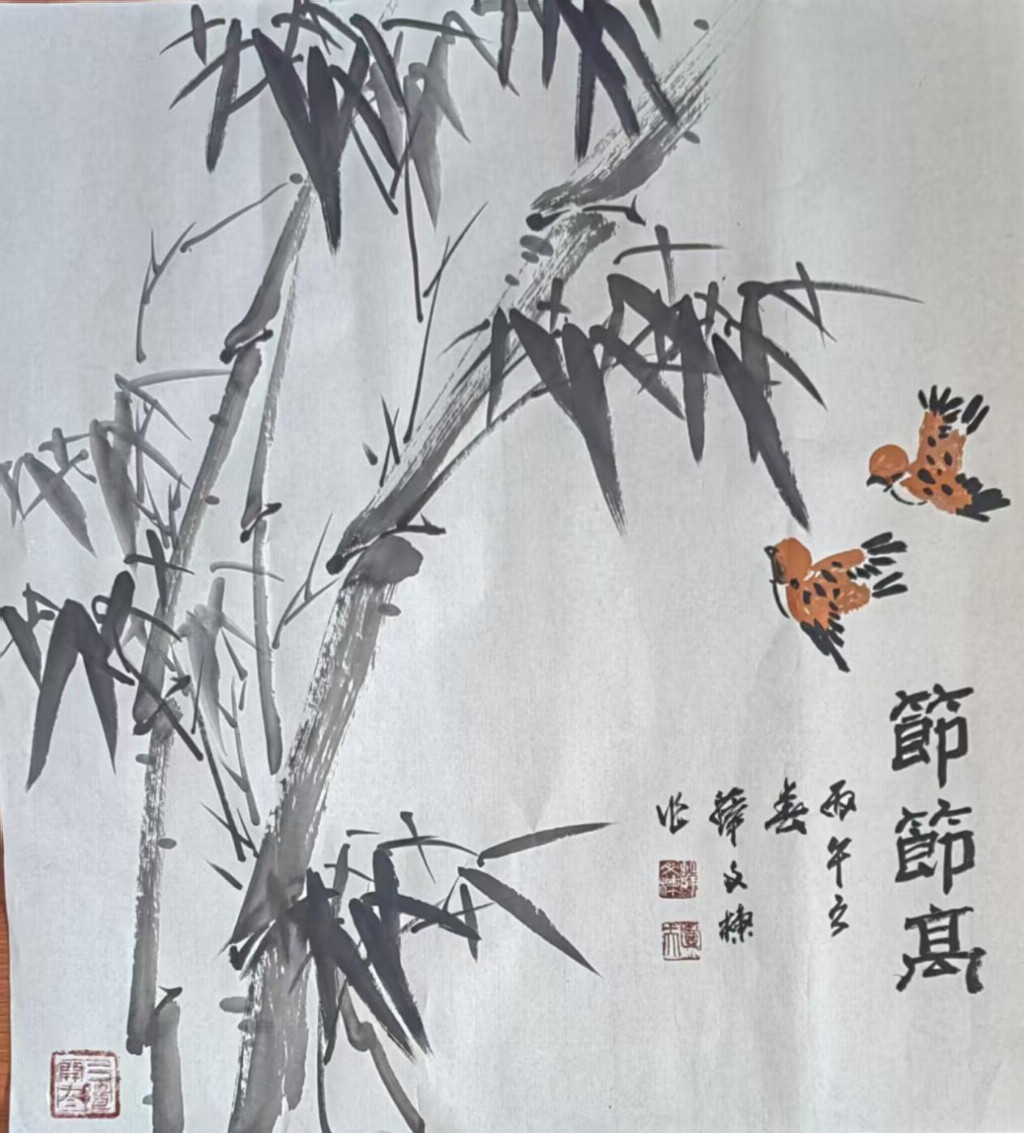 節節高
丙午之
春
文棟
作